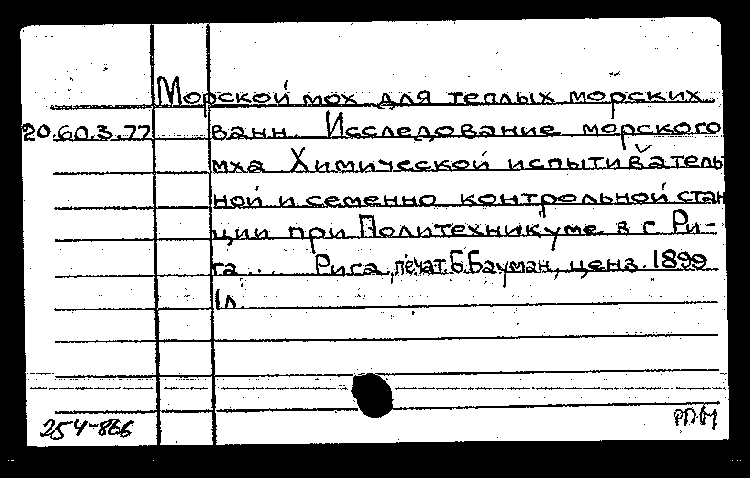 Морской мох для теплых морских
20.60.3.77 ванн. Исследование морского
мха Химической испытиватель
ной и семенно контрольной стан
ции при Политехникуме в г Ри-
га... Рига, печат. Б. Бауман, ценз. 1899
1л.
254-866